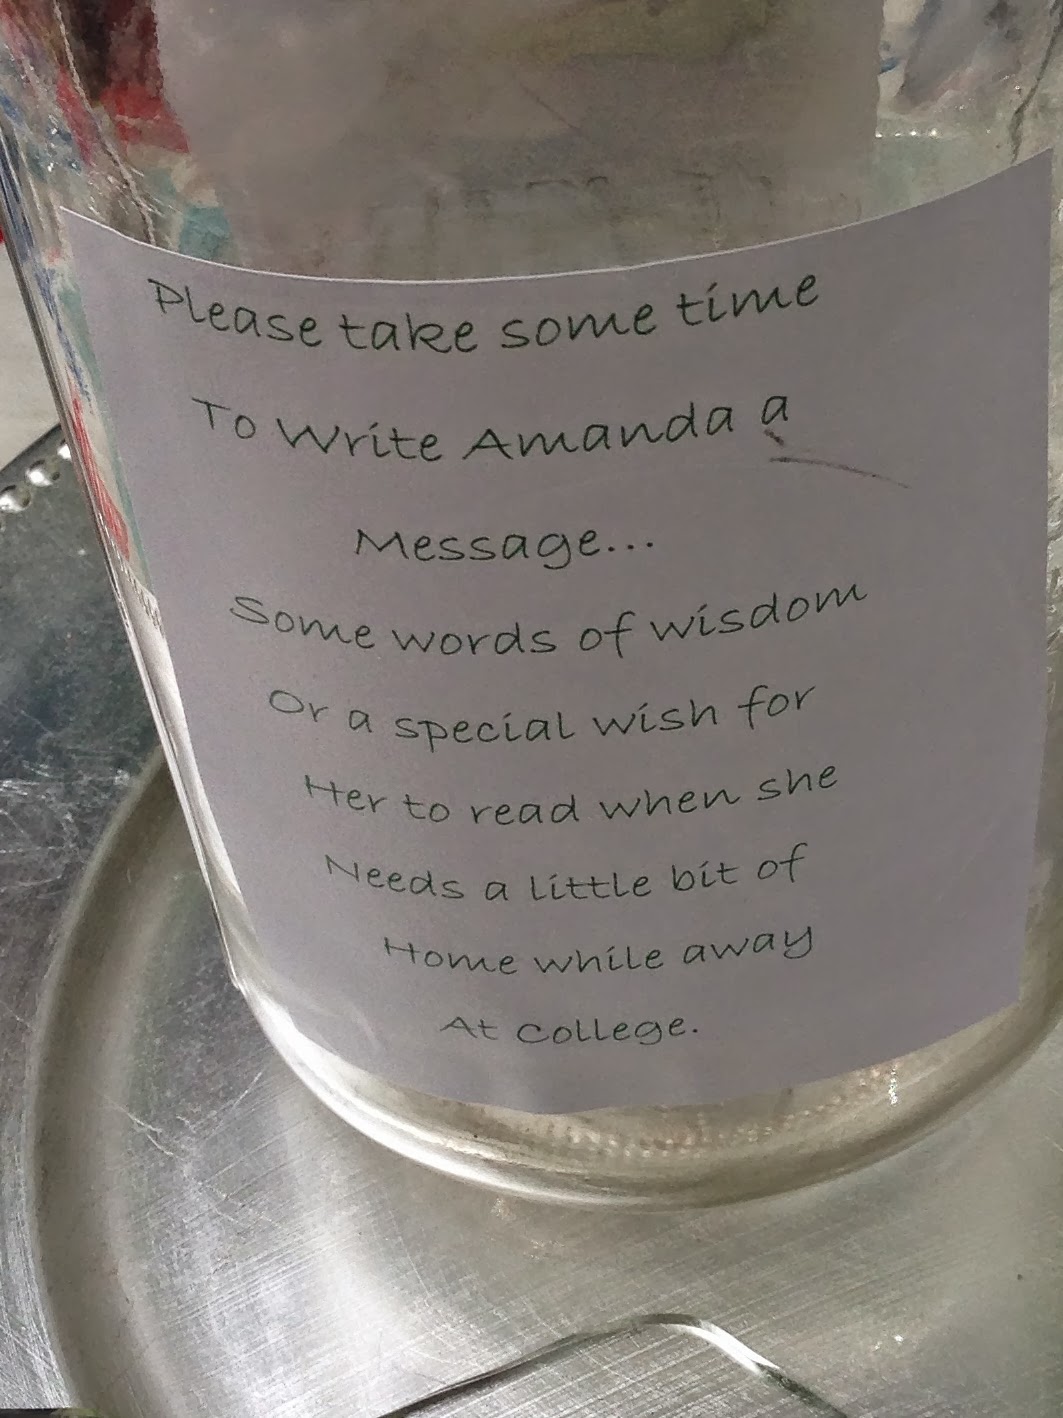 Please take some time
To Write Amanda a
Message...
Some words of wisdom
Or a special wish for
Her to read when she
Needs a little bit of
Home while away
At College.